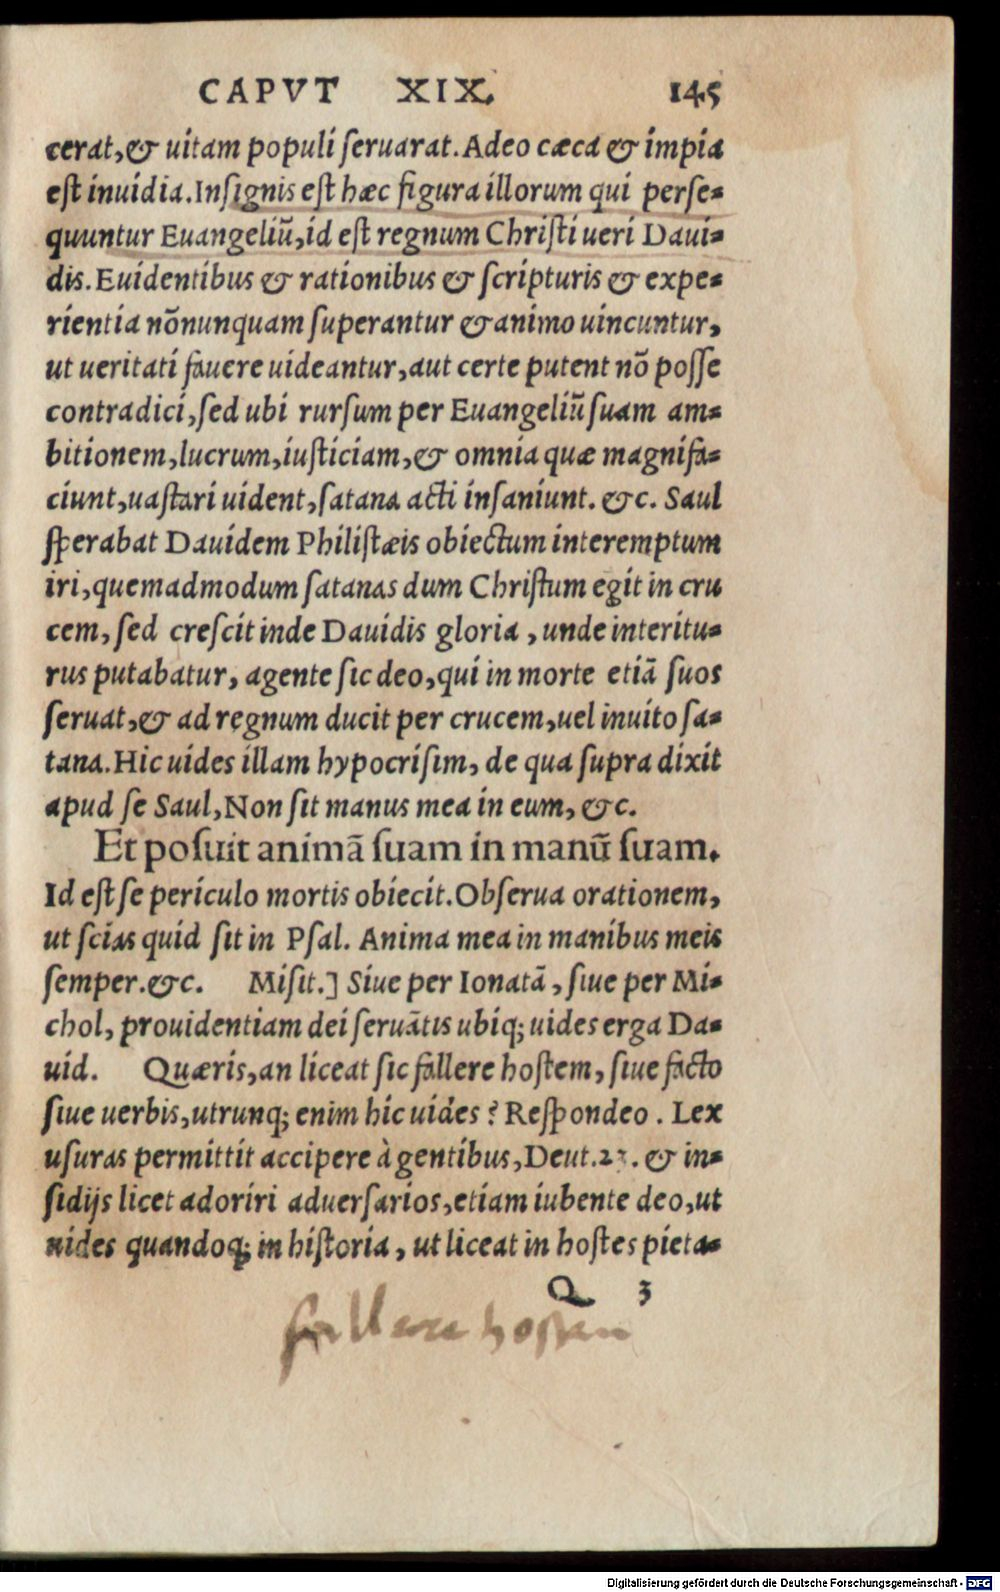 CAPVT XIX. 145
cerat,& uitam populi seruarat. Adeo cæca & impia
est inuidia. Insignis est hæc figura illorum qui perse-
quuntur Euangeliũ, id est regnum Christi ueri Daui-
dis. Euidentibus & rationibus & scripturis & expe-
rientia nõnunquam superantur & animo uincuntur,
ut ueritati fauere uideantur, aut certe putent nõ posse
contradici, sed ubi rursum per Euangeliũ suam am-
bitionem, lucrum, iusticiam, & omnia quæ magnifa-
ciunt, uastari uident, satana acti insaniunt. &c. Saul
sperabat Dauidem Philistæis obiectum interemptum
iri, quemadmodum satanas dum Christum egit in cru
cem, sed crescit inde Dauidis gloria, unde interitu-
rus putabatur, agente sic deo, qui in morte etiã suos
seruat, & ad regnum ducit per crucem, uel inuito sa-
tana. Hic uides illam hypocrisim, de qua supra dixit
apud se Saul, Non sit manus mea in eum, &c.
Et posuit animã suam in manũ suam.
Id est se periculo mortis obiecit. Obserua orationem,
ut scias quid sit in Psal. Anima mea in manibus meis
semper. &c. Misit.] Siue per Ionatã, siue per Mi-
chol, prouidentiam dei seruãtis ubiq; uides erga Da-
uid. Quæris, an liceat sic fallere hostem, siue facto
siue uerbis, utrunq; enim hic uides? Respondeo. Lex
usuras permittit accipere à gentibus, Deut. 23. & in-
sidijs licet adoriri aduersarios, etiam iubente deo, ut
uides quandoq; in historia, ut liceat in hostes pieta-
Q 3
fallere hostem
Digitalisierung gefördert durch die Deutsche Forschungsgemeinschaft - DFG